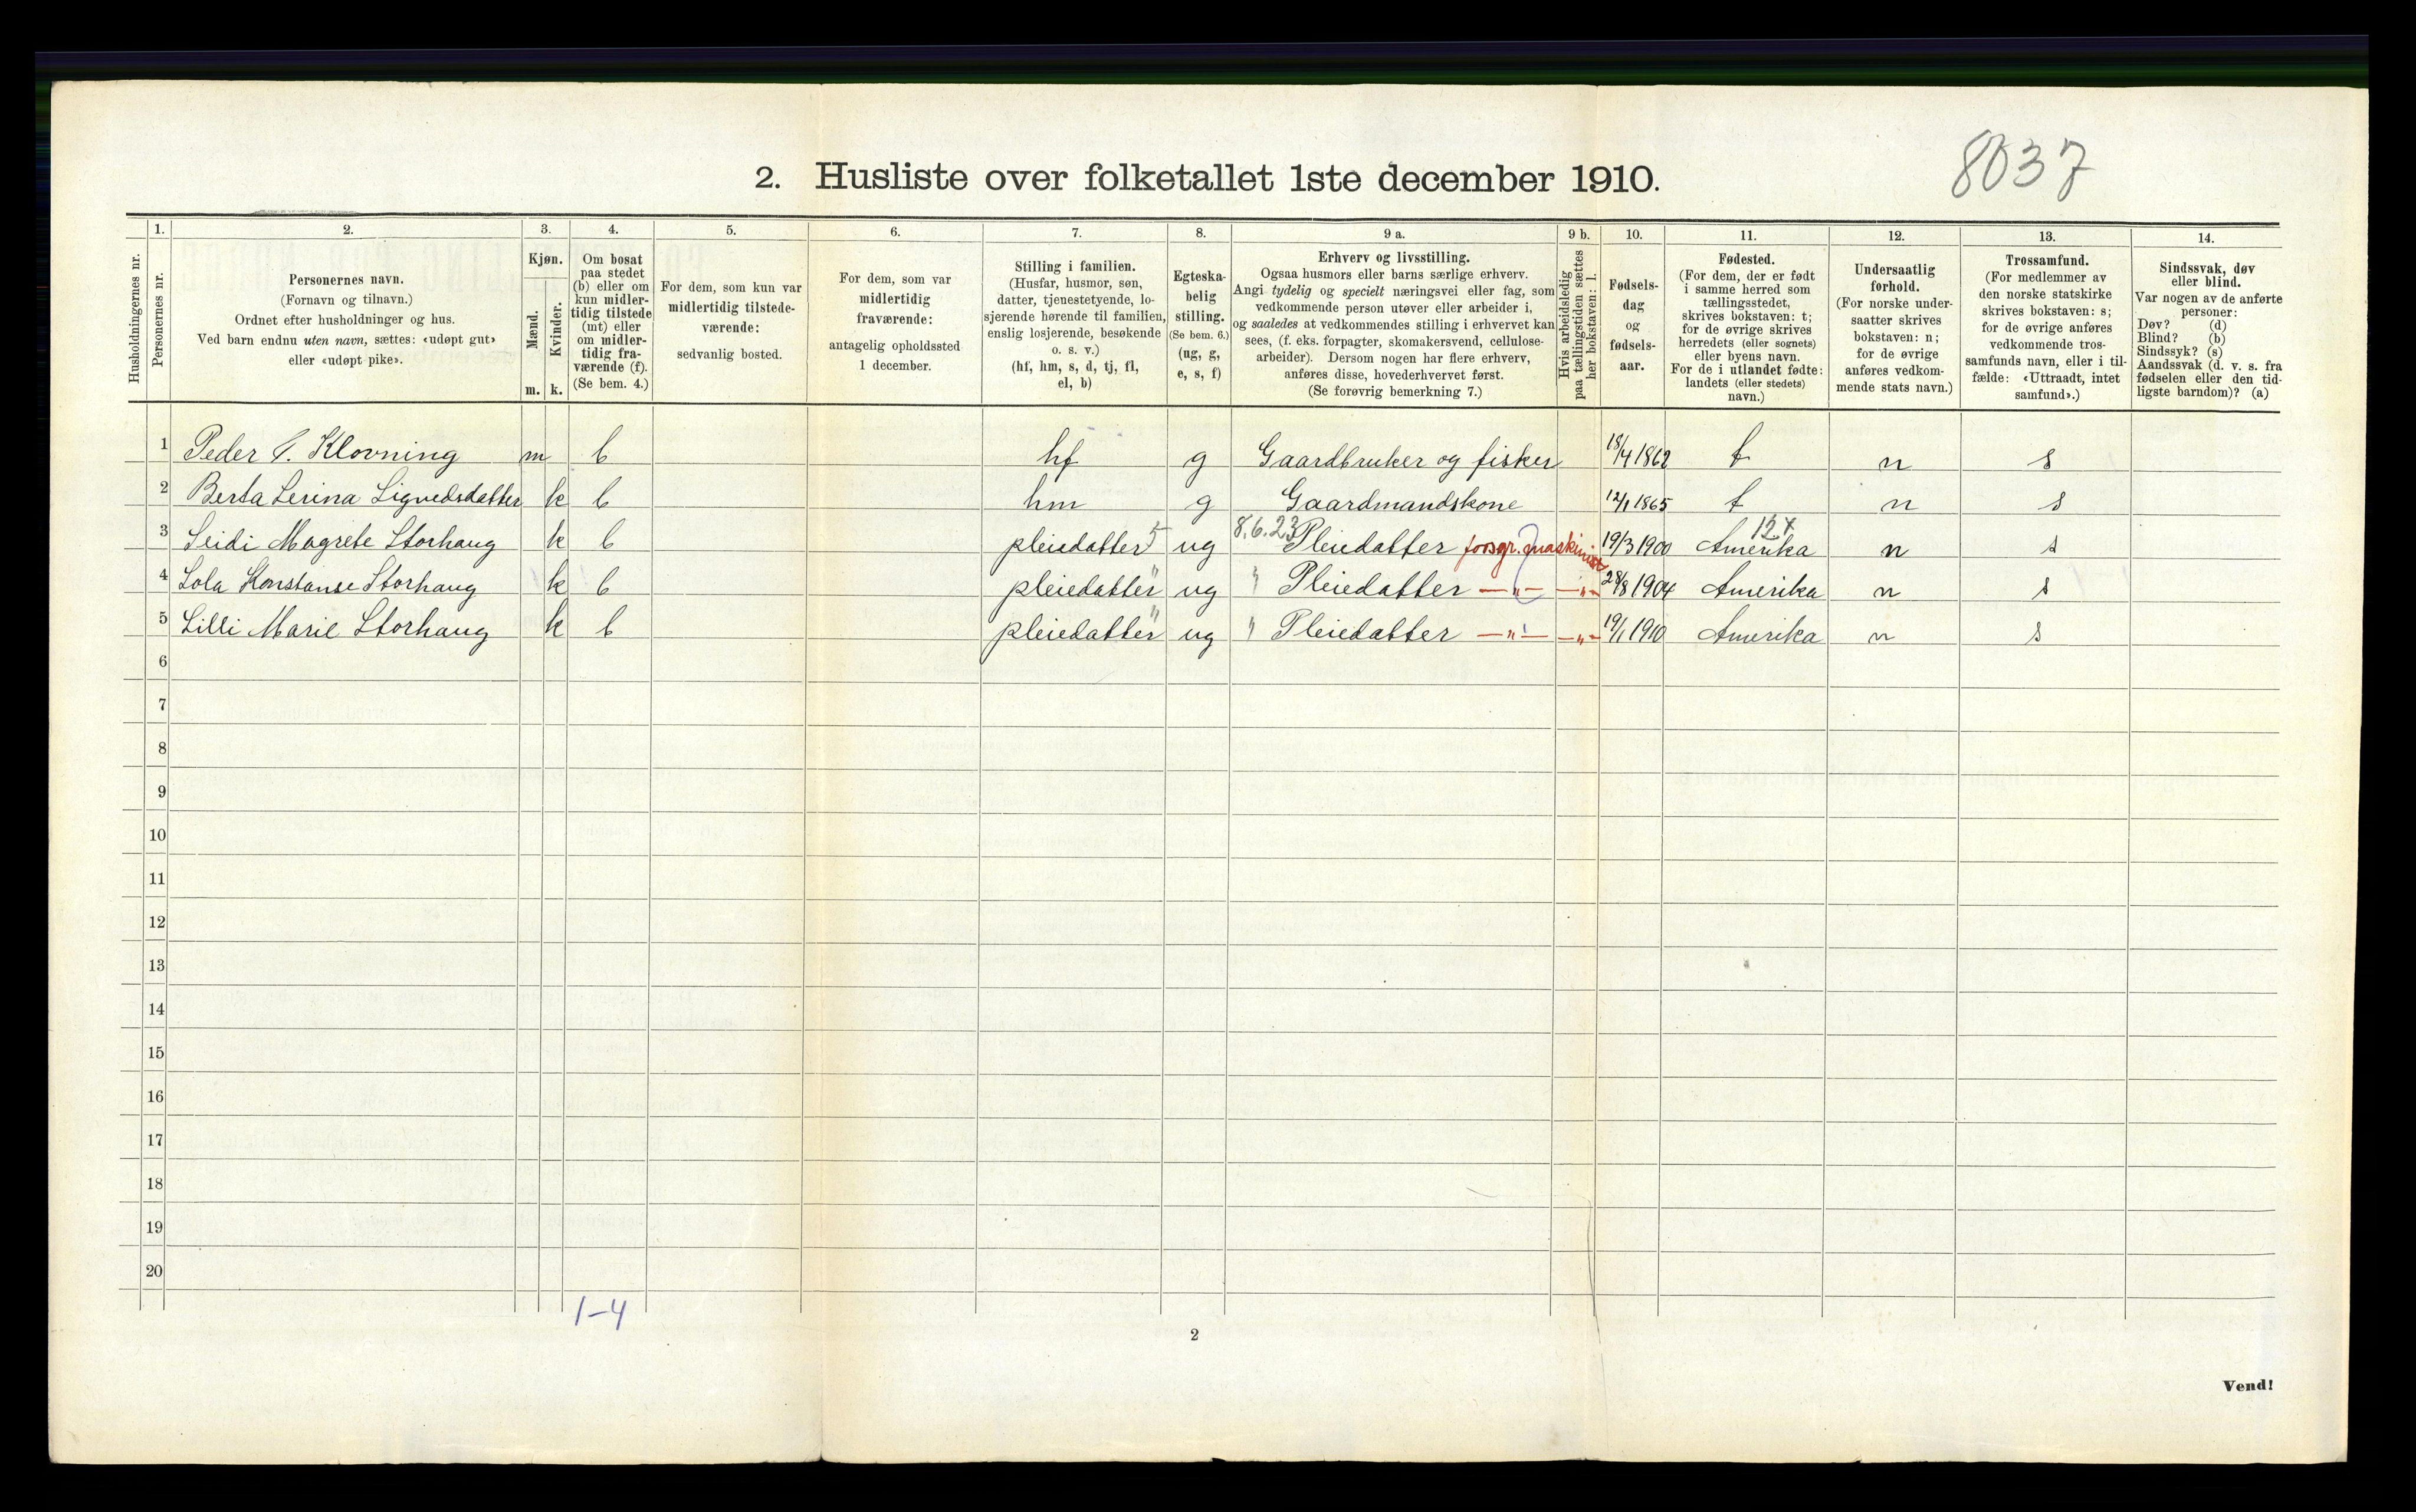 8037
2. Husliste over folketallet 1ste december 1910.
1. 2. 3. 4. 5. 6. 7. 8. 9 a. 9 b. 10. 11. 12. 13. 14.
Husholdningernes nr.
Personernes nr.
Personernes navn.
(Fornavn og tilnavn.)
Ordnet efter husholdninger og hus.
Ved barn endnu uten navn, sættes: «udøpt gut»
eller «udøpt pike».
Kjøn.
Mænd.
m.
Kvinder.
k.
Om bosat
paa stedet
(b) eller om
kun midler-
tidig tilstede
(mt) eller
om midler-
tidig fra-
værende (f).
(Se bem. 4.)
For dem, som kun var
midlertidig tilstede-
værende:
sedvanlig bosted.
For dem, som var
midlertidig
fraværende:
antagelig opholdssted
1 december.
Stilling i familien.
(Husfar, husmor, søn,
datter, tjenestetyende, lo-
sjerende hørende til familien,
enslig losjerende, besøkende
o. s. v.)
(hf, hm, s, d, tj, fl,
el, b)
Egteska-
belig
stilling.
(Se bem. 6.)
(ug, g,
e, s, f)
Erhverv og livsstilling.
Ogsaa husmors eller barns særlige erhverv.
Angi tydelig og specielt næringsvei eller fag, som
vedkommende person utøver eller arbeider i,
og saaledes at vedkommendes stilling i erhvervet kan
sees, (f. eks. forpagter, skomakersvend, cellulose-
arbeider). Dersom nogen har flere erhverv,
anføres disse, hovederhvervet først.
(Se forøvrig bemerkning 7.)
Hvis arbeidsledig
paa tællingstiden sættes
her bokstaven: l.
Fødsels-
dag
og
fødsels-
aar.
Fødested.
(For dem, der er født
i samme herred som
tællingsstedet,
skrives bokstaven: t;
for de øvrige skrives
herredets (eller sognets)
eller byens navn.
For de i utlandet fødte:
landets (eller stedets)
navn.)
Undersaatlig
forhold.
(For norske under-
saatter skrives
bokstaven: n;
for de øvrige
anføres vedkom-
mende stats navn.)
Trossamfund.
(For medlemmer av
den norske statskirke
skrives bokstaven: s;
for de øvrige anføres
vedkommende tros-
samfunds navn, eller i til-
fælde: «Uttraadt, intet
samfund».)
Sindssvak, døv
eller blind.
Var nogen av de anførte
personer:
Døv? (d)
Blind? (b)
Sindssyk? (s)
Aandssvak (d. v. s. fra
fødselen eller den tid-
ligste barndom)? (a)
1 Peder Klovning m b hf g Gaardbruker og fisker 18/4 1862 t n s
2 Berta Serina Sigvedsdatter k b hm g Gaardmandskone 12/1 1865 t n s
3 Seidi Magrete Storhaug k b pleiedatter 5 ug 8.6.23 Pleiedatter forsgr. maskinist 19/3 1900 Amerika n s
4 Lola Konstanse Storhaug k b pleiedatter " ug " Pleiedatter —"— —"— 28/8 1904 Amerika n s
5 Lilli Marie Storhaug k b pleiedatter " ug " Pleiedatter —"— —"— 19/1 1910 Amerika n s
6
7
8
9
10
11
12
13
14
15
16
17
18
19
20
1-4
2
Vend!